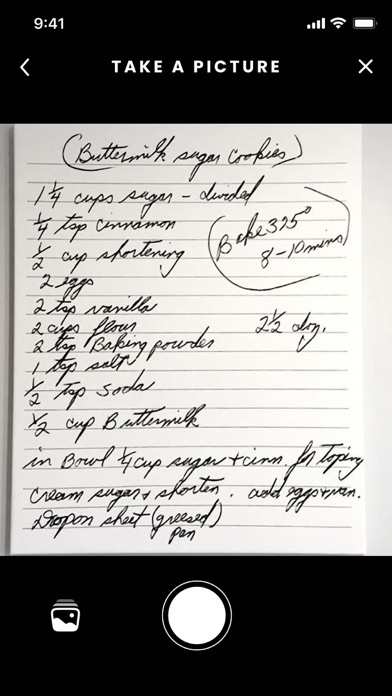 9:41
TAKE A PICTURE
(Buttermilk sugar cookies)
1 1/4 cups sugar - divided
1/4 tsp cinnamon
1/2 cup shortening
Bake 375°
8-10 mins
2 eggs
2 tsp vanilla
2 cups flour
2 1/2 doz.
2 tsp Baking powder
1 tsp salt
1/2 tsp soda
1/2 cup Buttermilk
in Bowl 1/4 cup sugar + cinn. for toping
Cream sugar + shorten. add eggs + van.
Drop on sheet (greesed)
pan